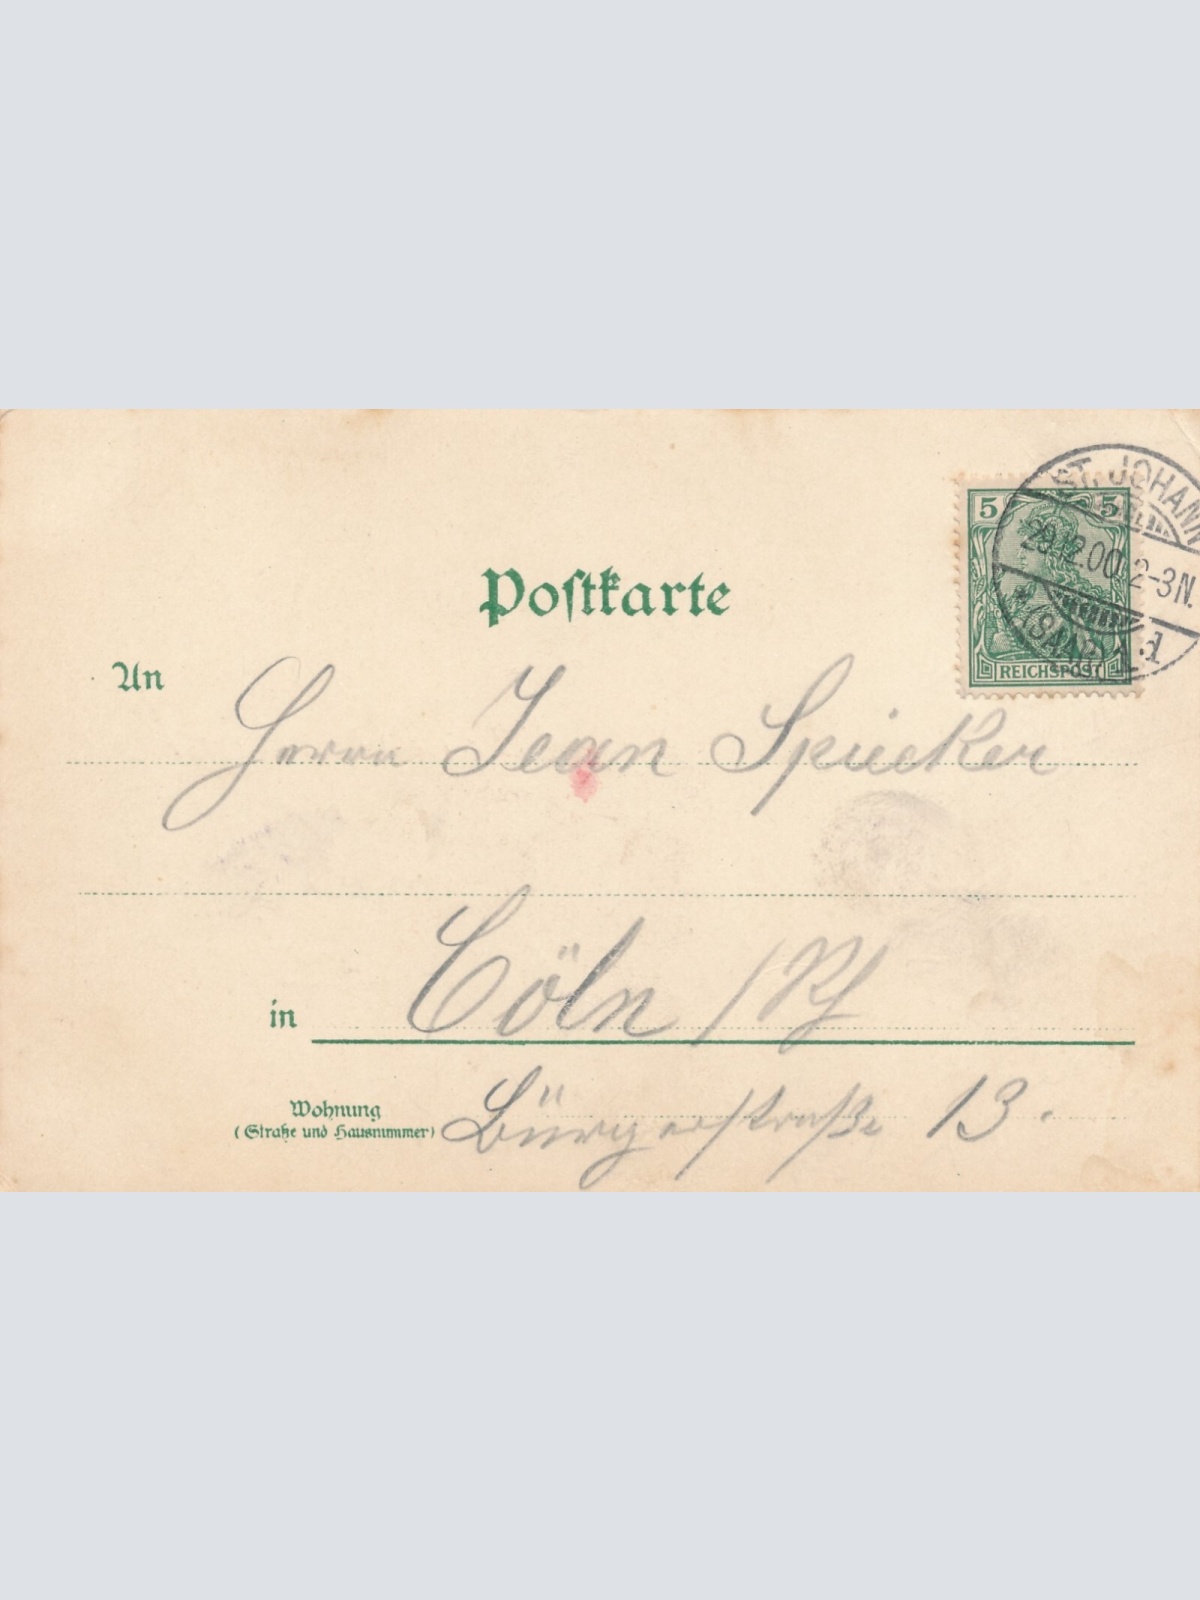 ST. JOHANN
5 5
29.12.00 2-3N.
(SAAR) 1 d
REICHSPOST
Postkarte
An Herrn Jean Spiecker
in Cöln /Rh
Wohnung
(Straße und Hausnummer) Bürgerstraße 13.